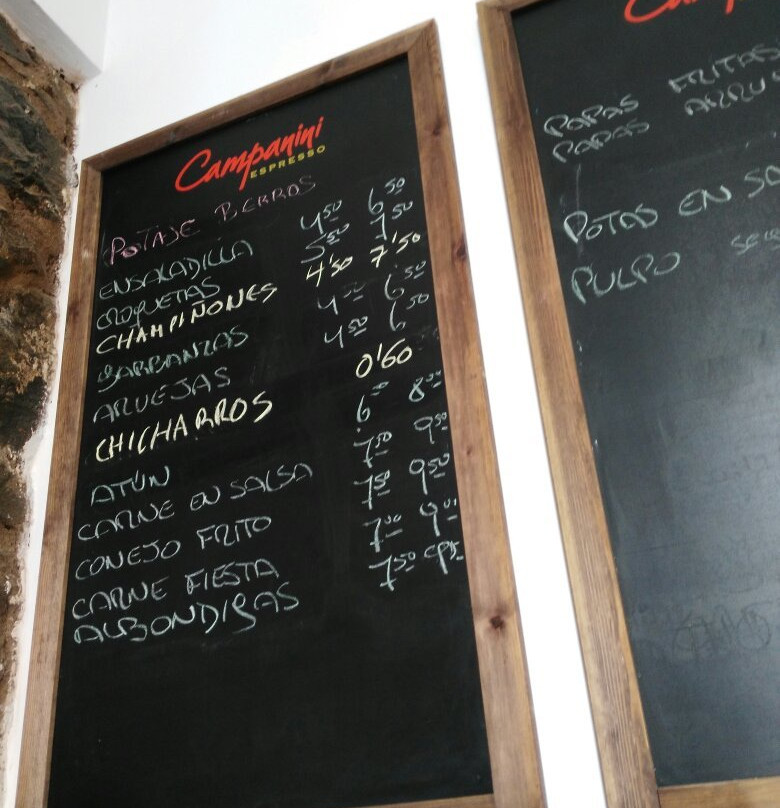 Campanini
ESPRESSO
POTAJE BERROS
ENSALADILLA 4,50 6,50
CROQUETAS 5,50 7,50
CHAMPIÑONES 4'50 7'50
GARBANZAS 6,50
ARUEJAS 4,50 6,50
CHICHARROS 0'60
ATÚN 6 8,00
CARNE EN SALSA 7,50 9,50
CONEJO FRITO 7,50 9,50
CARNE FIESTA 7,00
ALBONDIGAS 7,50
PAPAS FRITAS
PAPAS ARRU
POTAS EN SA
PULPO